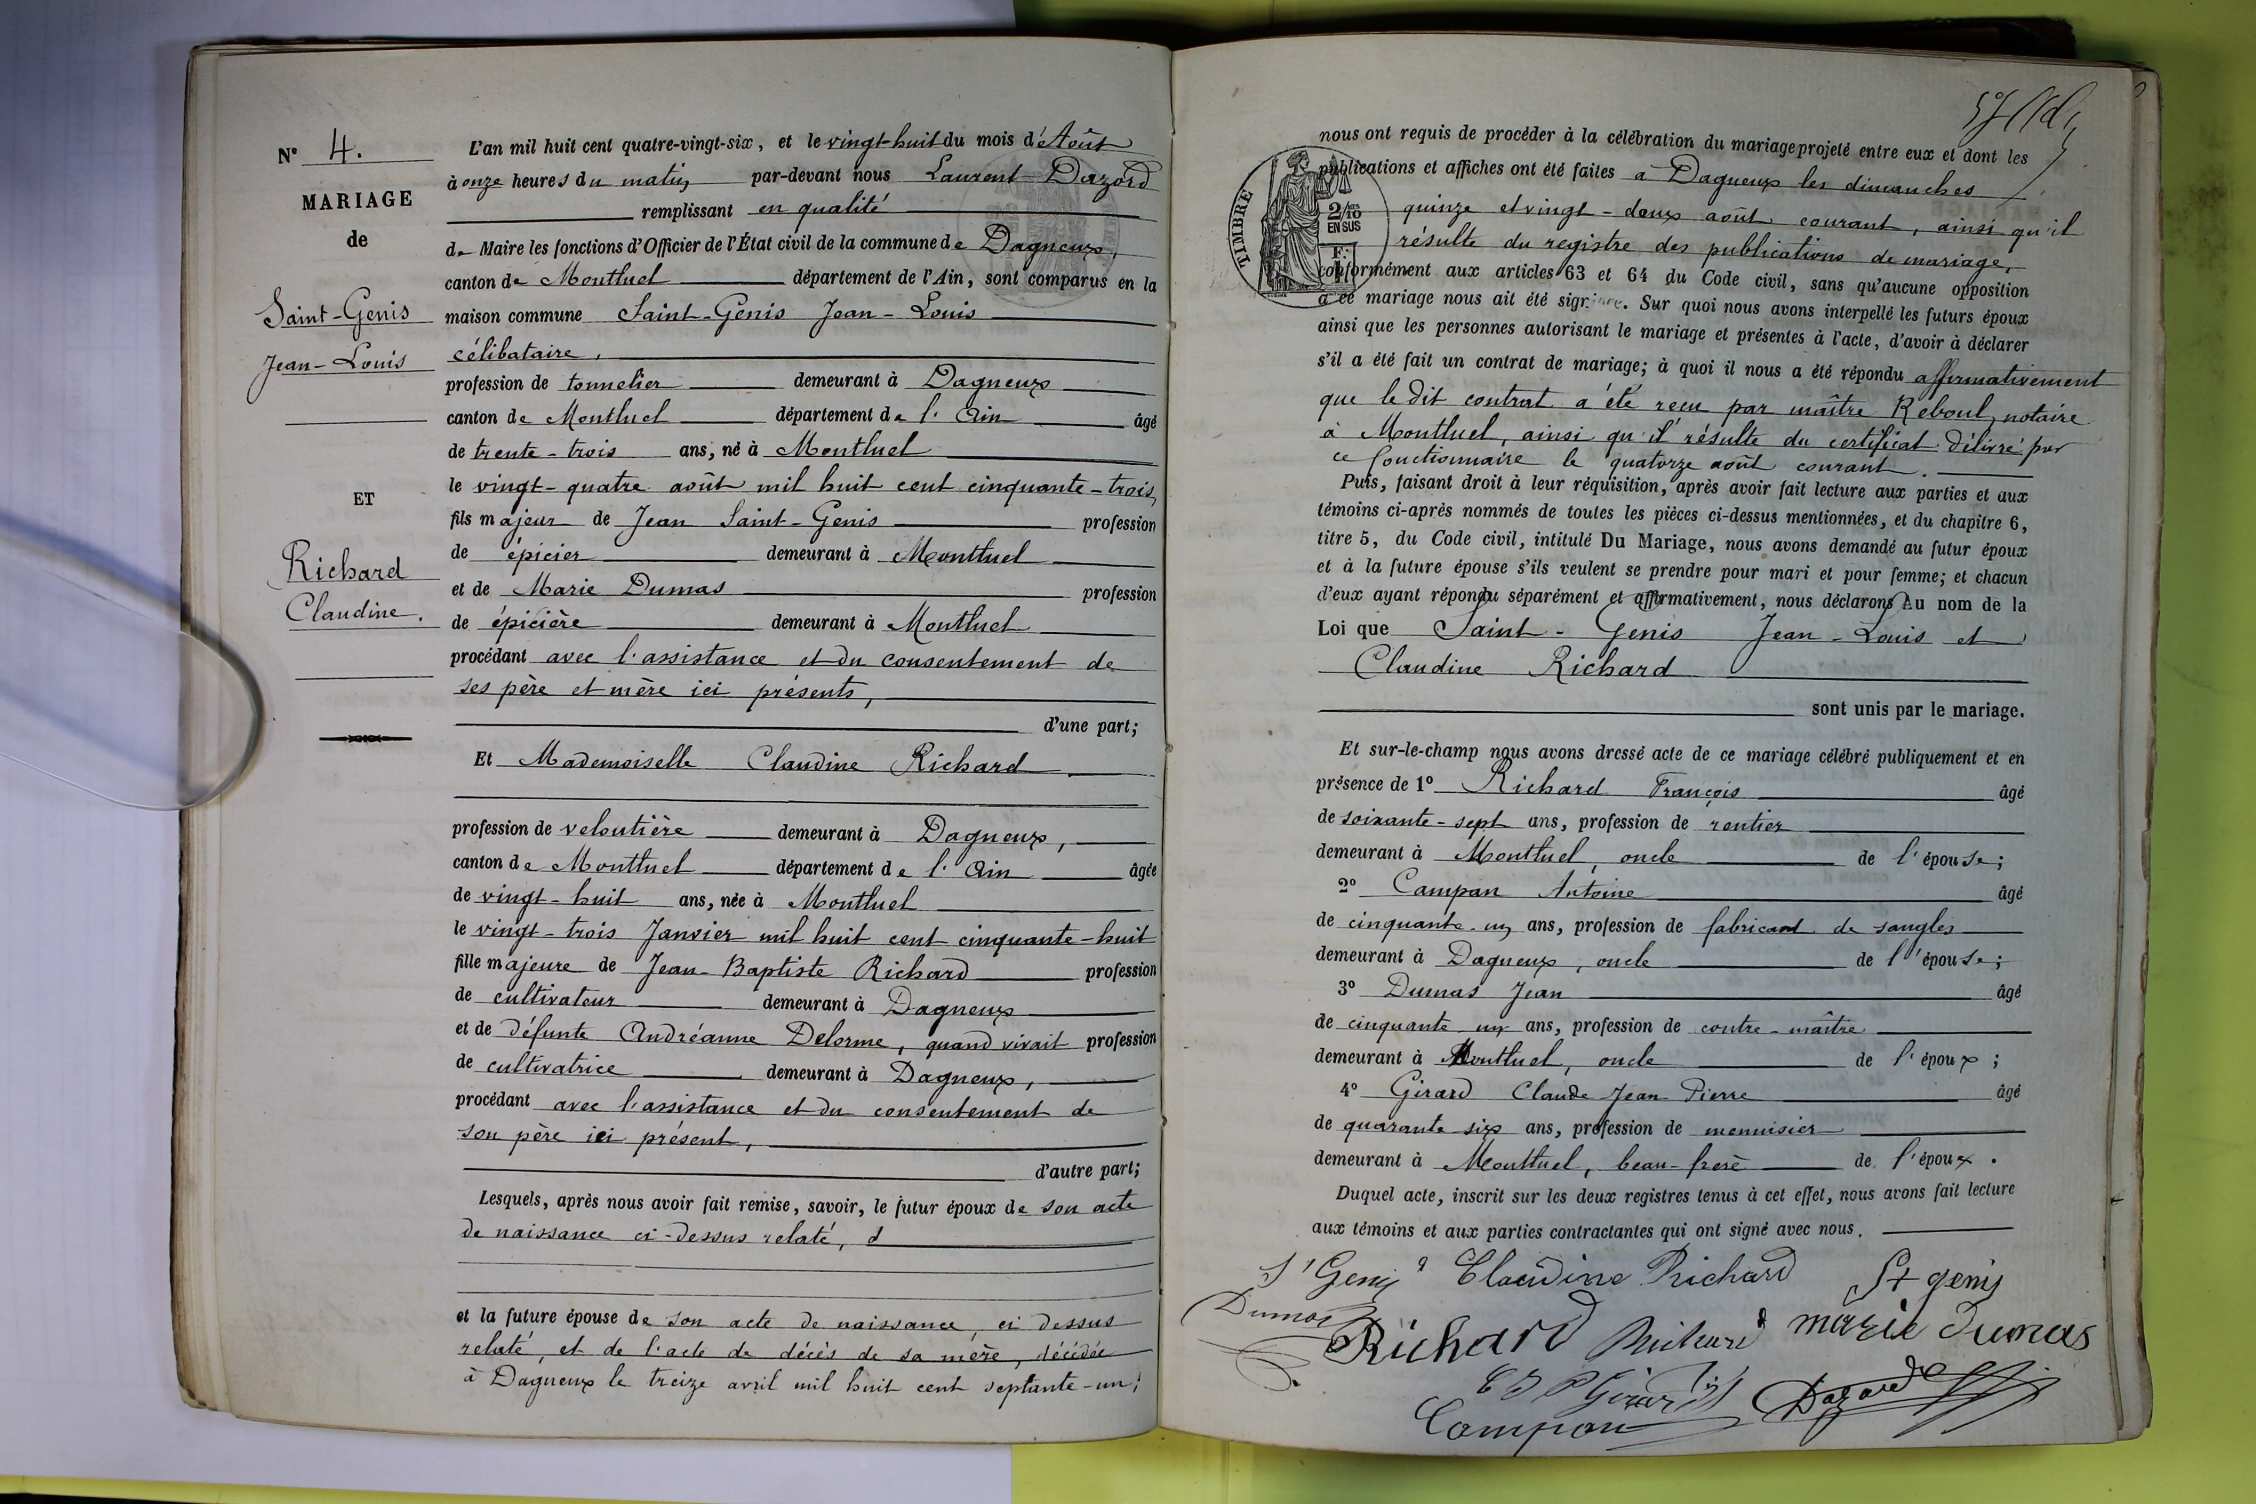 N° 4.
MARIAGE
de
Saint-Genis
Jean-Louis
ET
Richard
Claudine.
L'an mil huit cent quatre-vingt-six, et le vingt-huit du mois d'Août
à onze heures du matin par-devant nous Laurent Dazord
remplissant en qualité
de Maire les fonctions d'Officier de l'État civil de la commune de Dagneux,
canton de Montluel département de l'Ain, sont comparus en la
maison commune Saint-Genis Jean-Louis
célibataire,
profession de tonnelier demeurant à Dagneux
canton de Montluel département de l'Ain âgé
de trente-trois ans, né à Montluel
le vingt-quatre août mil huit cent cinquante-trois,
fils majeur de Jean Saint-Genis profession
de épicier demeurant à Montluel
et de Marie Dumas profession
de épicière demeurant à Montluel
procédant avec l'assistance et du consentement de
ses père et mère ici présents,
d'une part;
Et Mademoiselle Claudine Richard
profession de veloutière demeurant à Dagneux,
canton de Montluel département de l'Ain âgée
de vingt-huit ans, née à Montluel
le vingt-trois Janvier mil huit cent cinquante-huit
fille majeure de Jean-Baptiste Richard profession
de cultivateur demeurant à Dagneux
et de défunte Andréanne Delorme, quand vivait profession
de cultivatrice demeurant à Dagneux,
procédant avec l'assistance et du consentement de
son père ici présent,
d'autre part;
Lesquels, après nous avoir fait remise, savoir, le futur époux de son acte
de naissance ci-dessus relaté, d
et la future épouse de son acte de naissance, ci dessus
relaté, et de l'acte de décès de sa mère, décédée
à Dagneux le treize avril mil huit cent septante-un;
nous ont requis de procéder à la célébration du mariage projeté entre eux et dont les
publications et affiches ont été faites à Dagneux les dimanches
quinze et vingt-deux août courant, ainsi qu'il
résulte du registre des publications de mariage,
conformément aux articles 63 et 64 du Code civil, sans qu'aucune opposition
à ce mariage nous ait été signifiée. Sur quoi nous avons interpellé les futurs époux
ainsi que les personnes autorisant le mariage et présentes à l'acte, d'avoir à déclarer
s'il a été fait un contrat de mariage; à quoi il nous a été répondu affirmativement
que le dit contrat a été reçu par maître Reboul, notaire
à Montluel, ainsi qu'il résulte du certificat délivré par
ce fonctionnaire le quatorze août courant.
Puis, faisant droit à leur réquisition, après avoir fait lecture aux parties et aux
témoins ci-après nommés de toutes les pièces ci-dessus mentionnées, et du chapitre 6,
titre 5, du Code civil, intitulé Du Mariage, nous avons demandé au futur époux
et à la future épouse s'ils veulent se prendre pour mari et pour femme; et chacun
d'eux ayant répondu séparément et affirmativement, nous déclarons au nom de la
Loi que Saint-Genis Jean-Louis et
Claudine Richard
sont unis par le mariage.
Et sur-le-champ nous avons dressé acte de ce mariage célébré publiquement et en
présence de 1° Richard François âgé
de soixante-sept ans, profession de rentier
demeurant à Montluel, oncle de l'épouse;
2° Campan Antoine âgé
de cinquante-un ans, profession de fabricant de sangles
demeurant à Dagneux, oncle de l'épouse;
3° Dumas Jean âgé
de cinquante-un ans, profession de contre-maître
demeurant à Montluel, oncle de l'époux;
4° Girard Claude Jean Pierre âgé
de quarante six ans, profession de menuisier
demeurant à Montluel, beau-frère de l'époux.
Duquel acte, inscrit sur les deux registres tenus à cet effet, nous avons fait lecture
aux témoins et aux parties contractantes qui ont signé avec nous.
TIMBRE
2/10
EN SUS
St Genis Claudine Richard St genis
Dumas Richard Richard marie Dumas
C J P Girard Dazord
Campan